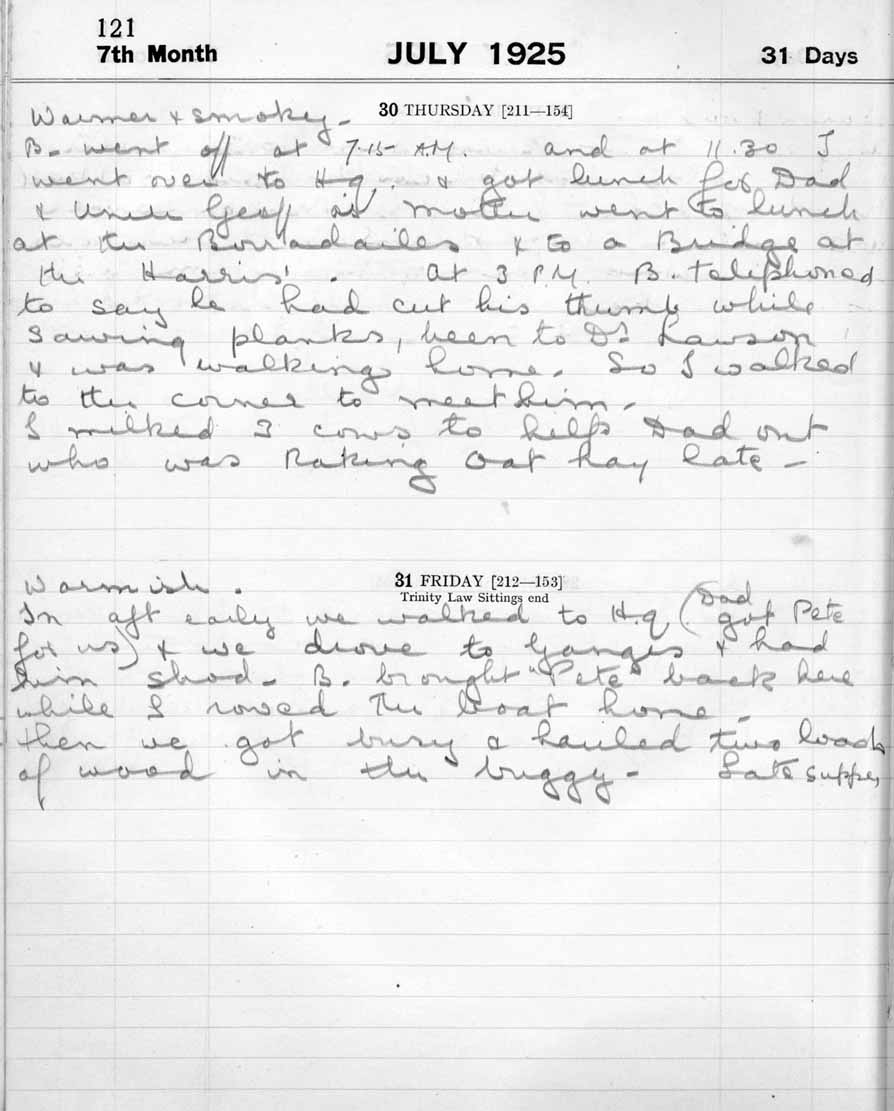 121
7th Month JULY 1925 31 Days
30 THURSDAY [211—154]
Warmer & smokey -
B. went off at 7.15 A.M. and at 11.30 I
went over to Hq. & got lunch for Dad
& Uncle Geoff as mother went to lunch
at the Borradailes & to a Bridge at
the Harris'. At 3 P.M. B. telephoned
to say he had cut his thumb while
sawing planks, been to Dr Lawson
& was walking home. So I walked
to the corner to meet him -
I milked 3 cows to help Dad out
who was Raking Oat hay late -
31 FRIDAY [212—153]
Trinity Law Sittings end
Warmish.
In aft early we walked to H.q (Dad got Pete
for us) & we drove to Ganges & had
him shod - B. brought "Pete" back here
while I rowed the boat home -
then we got busy & hauled two loads
of wood in the buggy - Late supper